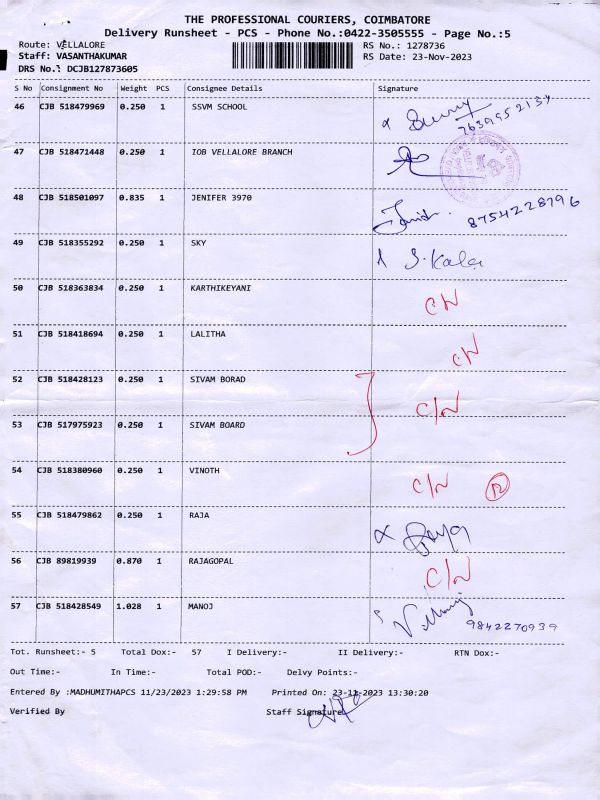 THE PROFESSIONAL COURIERS, COIMBATORE
Delivery Runsheet - PCS - Phone No.:0422-3505555 - Page No.:5
Route: VELLALORE RS No.: 1278736
Staff: VASANTHAKUMAR RS Date: 23-Nov-2023
DRS No.: DCJB127873605
S No Consignment No Weight PCS Consignee Details Signature
46 CJB 518479969 0.250 1 SSVM SCHOOL 7639952134
47 CJB 518471448 0.250 1 IOB VELLALORE BRANCH
48 CJB 518501097 0.835 1 JENIFER 3970 8754228796
49 CJB 518355292 0.250 1 SKY S.Kala
50 CJB 518363834 0.250 1 KARTHIKEYANI C/N
51 CJB 518418694 0.250 1 LALITHA C/N
52 CJB 518428123 0.250 1 SIVAM BORAD C/N
53 CJB 517975923 0.250 1 SIVAM BOARD
54 CJB 518380960 0.250 1 VINOTH C/N 12
55 CJB 518479862 0.250 1 RAJA
56 CJB 89819939 0.870 1 RAJAGOPAL C/N
57 CJB 518428549 1.028 1 MANOJ 9842270939
Tot. Runsheet:- 5 Total Dox:- 57 I Delivery:- II Delivery:- RTN Dox:-
Out Time:- In Time:- Total POD:- Delvy Points:-
Entered By :MADHUMITHAPCS 11/23/2023 1:29:58 PM Printed On: 23-11-2023 13:30:20
Verified By Staff Signature